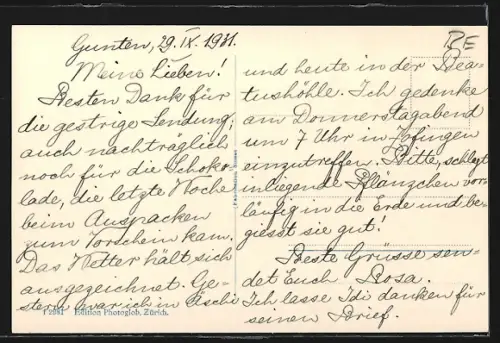 BE
Gunten, 29. IX. 1931.
Meine Lieben!
Besten Dank für
die gestrige Sendung,
auch nachträglich
noch für die Schoko-
lade, die letzte Woche
beim Auspacken
zum Vorschein kam.
Das Wetter hält sich
ausgezeichnet. Ge-
stern war ich in Aeschi
und heute in der Bea-
tushöhle. Ich gedenke
am Donnerstagabend
um 7 Uhr in Zofingen
einzutreffen. Bitte, schlagt
inliegende Pflänzchen vor-
läufig in die Erde und be-
giesst sie gut!
Beste Grüsse sen-
det Euch Rosa.
Ich lasse Idi danken für
seinen Brief.
Edition Photoglob, Zürich.